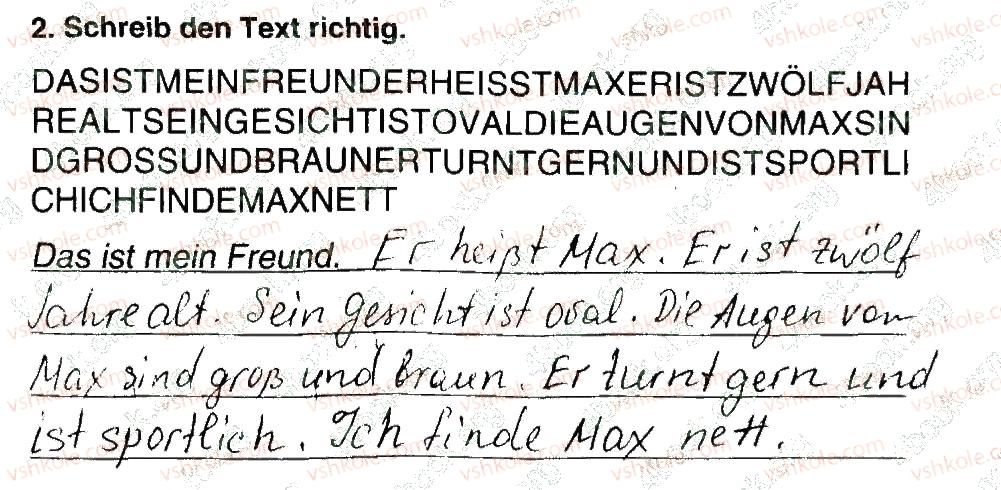 2. Schreib den Text richtig.
DASISTMEINFREUNDERHEISSTMAXERISTZWÖLFJAH
REALTSEINGESICHTISTOVALDIEAUGENVONMAXSIN
DGROSSUNDBRAUNERTURNTGERNUNDISTSPORTLI
CHICHFINDEMAXNETT
Das ist mein Freund. Er heißt Max. Er ist zwölf
Jahre alt. Sein gesicht ist oval. Die Augen von
Max sind groß und braun. Er turnt gern und
ist sportlich. Ich finde Max nett.